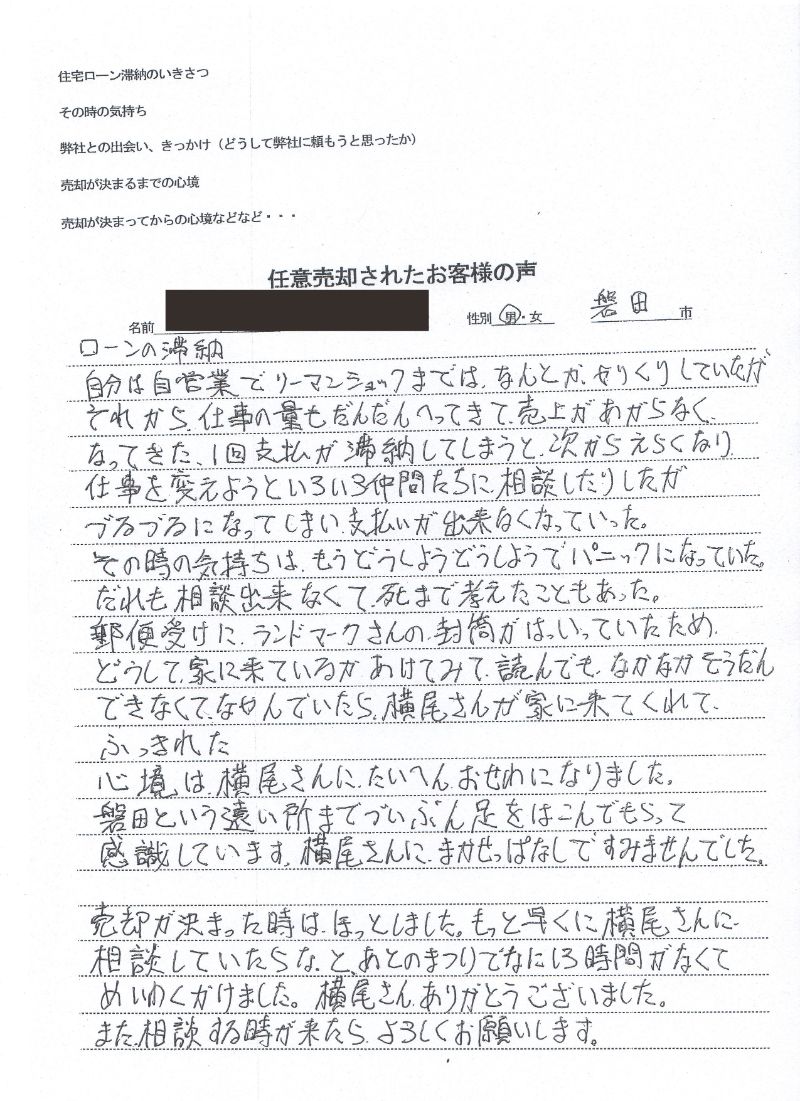 住宅ローン滞納のいきさつ
その時の気持ち
弊社との出会い、きっかけ（どうして弊社に頼もうと思ったか）
売却が決まるまでの心境
売却が決まってからの心境などなど・・・
任意売却されたお客様の声
名前 性別 男・女 磐田 市
ローンの滞納
自分は自営業でリーマンショックまでは、なんとか、やりくりしていたが
それから、仕事の量もだんだんへってきて、売上があがらなく、
なってきた、1回支払が滞納してしまうと、次からえらくなり
仕事を変えようといろいろ仲間たちに、相談したりしたが
づるづるになってしまい、支払いが出来なくなっていった。
その時の気持ちは、もうどうしようどうしようでパニックになっていた。
だれも相談出来なくて、死まで考えたこともあった。
郵便受けに、ランドマークさんの、封筒がはいっていたため、
どうして、家に来ているかあけてみて、読んでも、なかなかそうだん
できなくて、なやんでいたら、横尾さんが家に来てくれて、
ふっきれた
心境は、横尾さんに、たいへん、おせわになりました。
磐田という遠い所までづいぶん足をはこんでもらって
感識しています。横尾さんに、まかせっぱなしですみませんでした。
売却が決まった時は、ほっとしました。もっと早くに横尾さんに
相談していたらな、と、あとのまつりでなにしろ時間がなくて
めいわくかけました。横尾さん、ありがとうございました。
また、相談する時が来たら、よろしくお願いします。